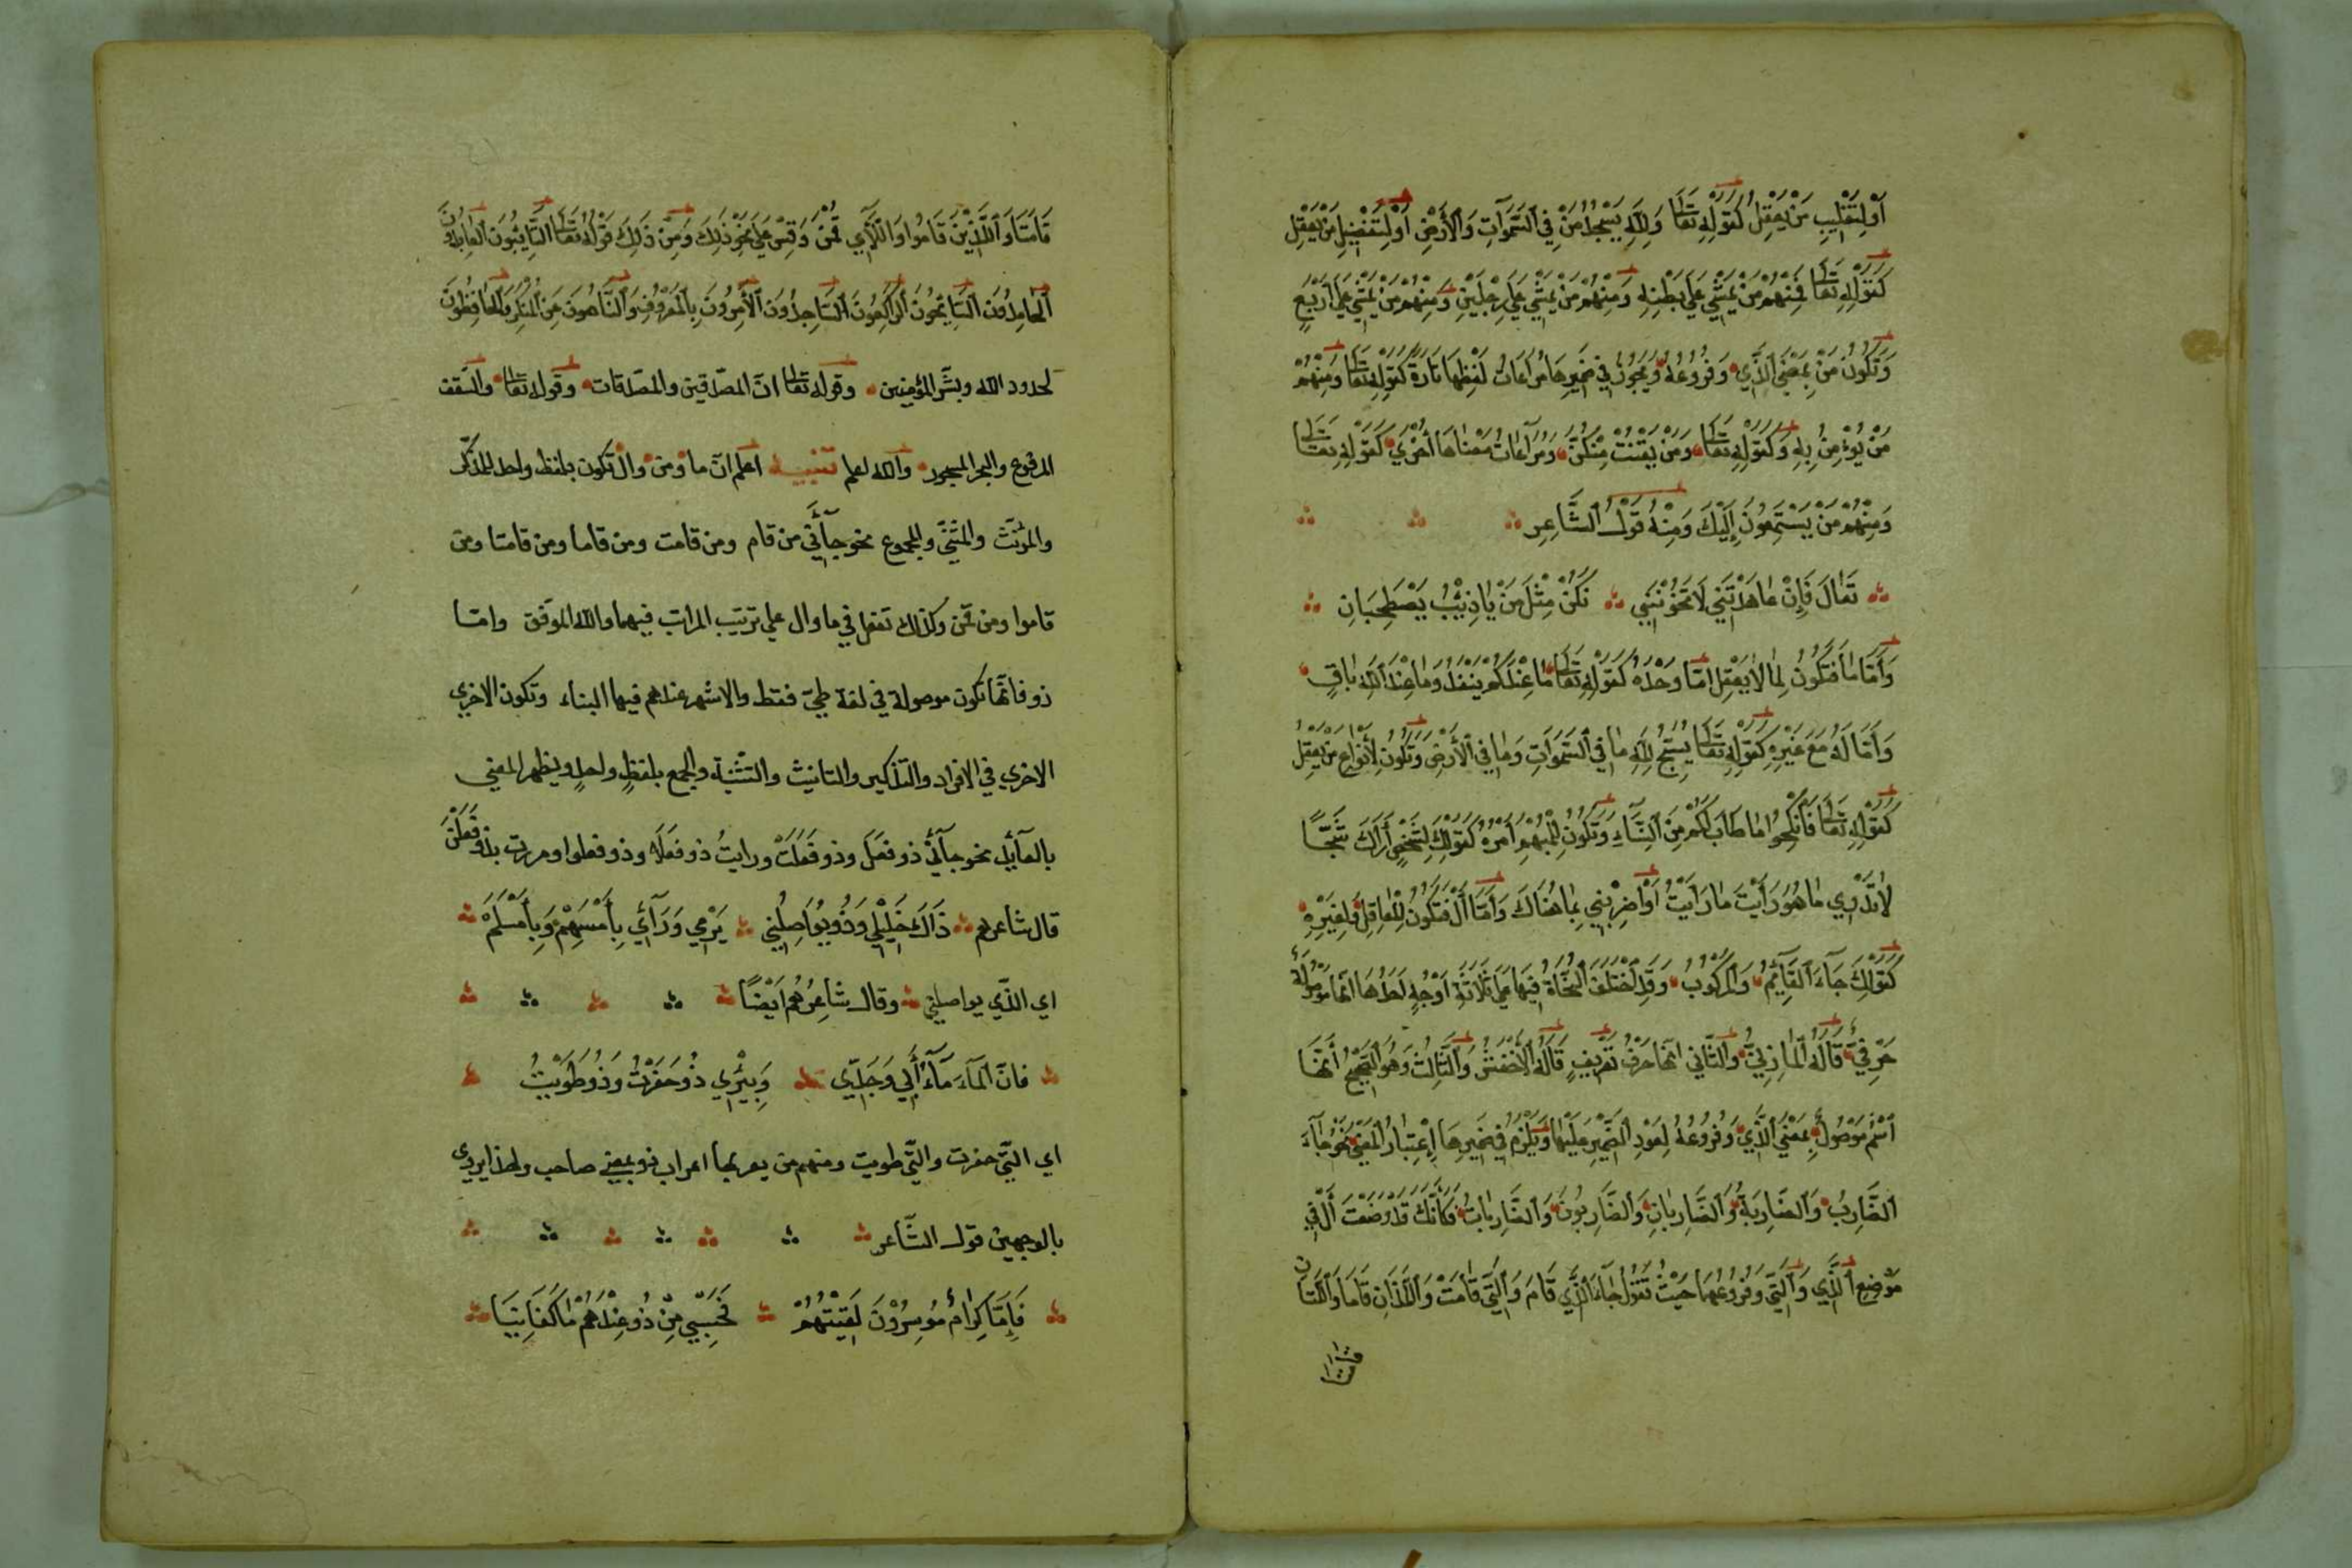 أَوْ لِتَغْلِيبِ مَنْ يَعْقِلُ كَقَوْلِهِ تَعَالَى وَلِلَّهِ يَسْجُدُ مَنْ فِي السَّمَوَاتِ وَالْأَرْضِ أَوْ لِتَفْضِيلِ مَنْ يَعْقِلُ
كَقَوْلِهِ تَعَالَى فَمِنْهُمْ مَنْ يَمْشِي عَلَى بَطْنِهِ وَمِنْهُمْ مَنْ يَمْشِي عَلَى رِجْلَيْنِ وَمِنْهُمْ مَنْ يَمْشِي عَلَى أَرْبَعٍ
وَتَكُونُ مَنْ بِمَعْنَى الَّذِي وَفُرُوعُهُ وَيَجُوزُ فِي ضَمِيرِهَا مُرَاعَاتُ لَفْظِهَا تَارَةً كَقَوْلِهِ تَعَالَى وَمِنْهُمْ
مَنْ يُؤْمِنُ بِهِ وَكَقَوْلِهِ تَعَالَى وَمَنْ يَقْنُتْ مِنْكُنَّ وَمُرَاعَاتُ مَعْنَاهَا أُخْرَي كَقَوْلِهِ تَعَالَى
وَمِنْهُمْ مَنْ يَسْتَمِعُونَ إِلَيْكَ وَمِنْهُ قَوْلُ الشَّاعِرِ
تَعَالَ فَإِنْ عَاهَدْتَنِي لَا تَخُونُنَنِي نَكُنْ مِثْلَ مَنْ يَاذِئْبُ يَصْطَحِبَانِ
وَأَمَّا مَا فَتَكُونُ لِمَا لَا يَعْقِلُ امَّا وَحْدَهُ كَقَوْلِهِ تَعَالَى مَا عِنْدَكُمْ يَنْفَدُ وَمَا عِنْدَ اللهِ بَاقٍ
وَأَمَّا لَهُ مَعَ غَيْرِهِ كَقَوْلِهِ تَعَالَى يُسَبِّحُ لِلَّهِ مَا فِي السَّمَوَاتِ وَمَا فِي الْأَرْضِ وَتَكُونُ لِأَنْوَاعِ مَنْ يَعْقِلُ
كَقَوْلِهِ تَعَالَى فَانْكِحُوا مَا طَابَ لَكُمْ مِنَ النِّسَاءِ وَتَكُونُ لِلْمُبْهَمِ أَمْرُهُ كَقَوْلِكَ لِشَخْصٍ أَرَاكَ شَبَحًا
لَا تَدْرِي مَا هُوَ رَأَيْتَ مَا رَأَيْتُ أَوْ اضْرِبْنِي بِمَا هُنَاكَ وَأَمَّا أَلْ فَتَكُونُ لِلْعَاقِلِ وَلِغَيْرِهِ
كَقَوْلِكَ جَآءَ الْقَآئِمُ وَالْمَرْكُوبُ وَقَدِ اخْتَلَفَ النُّحَاةُ فِيهَا عَلَى ثَلَاثَةِ أَوْجُهٍ أَحَدُهَا أَنَّهَا مَوْصُولَةٌ
حَرْفِيٌّ قَالَهُ الْمَازِنِيُّ وَالثَّانِي أَنَّهَا حَرْفُ تَعْرِيفٍ قَالَهُ الْأَخْفَشُ وَالثَّالِثُ وَهُوَ الصَّحِيحُ أَنَّهَا
اسْمٌ مَوْصُولٌ بِمَعْنَى الَّذِي وَفُرُوعُهُ لِعَوْدِ الضَّمِيرِ عَلَيْهَا وَيَلْزَمُ فِي ضَمِيرِهَا إِعْتِبَارُ الْمَعْنَى نَحْوُ جَآءَ
الضَّارِبُ وَالضَّارِبَةُ وَالضَّارِبَانِ وَالضَّارِبُونَ وَالضَّارِبَاتُ فَكَأَنَّكَ قَدْ وَضَعْتَ أَلْ فِي
مَوْضِعِ الَّذِي وَالَّتِي وَفُرُوعُهُمَا حَيْثُ تَقُولُ جَآءَ الَّذِي قَامَ وَالَّتِي قَامَتْ وَاللَّذَانِ قَامَا وَاللَّتَانِ
قَامَتَا وَالَّذِينَ قَامُوا وَاللَّآئِي قُمْنَ وَقِسْ عَلَى نَحْوِ ذَلِكَ وَمِنْ ذَلِكَ قَوْلُهُ تَعَالَى التَّآئِبُونَ الْعَابِدُونَ
الْحَامِدُونَ السَّآئِحُونَ الرَّاكِعُونَ السَّاجِدُونَ الْآمِرُونَ بِالْمَعْرُوفِ وَالنَّاهُونَ عَنِ الْمُنْكَرِ وَالْحَافِظُونَ
لحدود الله وبشّر المؤمنين وقوله تعالى انّ المصّدّقين والمصّدّقات وقوله تعالى والسّقف
المرفوع والبحر المسجور والله اعلم تنبيـه اعلم انّ ما ومن وال تكون بلفظ واحد للمذكّر
والمؤنّث والمثنّى والمجموع نحو جآءَني من قام ومن قامت ومن قاما ومن قامتا ومن
قاموا ومن قمن وكذلك تفعل في ما وال على ترتيب المراتب فيهما والله الموفّق وامّا
ذو فانّها تكون موصولة في لغة طيّ فقط والاشهر عندهم فيها البناء وتكون الاخري
الاخري في الافراد والتذكير والتانيث والتثنية والجمع بلفظٍ واحدٍ ويظهر المعني
بالعآئد نحو جآءني ذو فَعَلَ وذو فَعَلَتْ ورايتُ ذو فَعَلَا وذو فعلوا ومررت بذو فَعَلْنَ
قال شاعرهم ذَاكَ خَلِيلِي وَذُو يُوَاصِلُنِي يَرْمِي وَرَآئِي بِأَمْسَهِمْ وَبِأَمْسَلَمَهْ
اي الّذي يواصلني وقال شَاعِرُهُمْ اَيْضًا
فانّ الْمَآءَ مَآءُ أَبِي وَجَدِّي وَبِئْرِي ذُو حَفَرْتُ وَذُو طَوَيْتُ
اي الّتي حفرت والّتي طويت ومنهم من يعربها اعراب ذو بمعني صاحب ولهذا يروي
بالوجهين قول الشّاعر
فَإِمَّا كِرَامٌ مُوسِرُوْنَ لَقِيْتُهُمْ فَحَسْبِي مِنْ ذُو عِنْدَهُمْ مَا كَفَانِيَا
قامتا